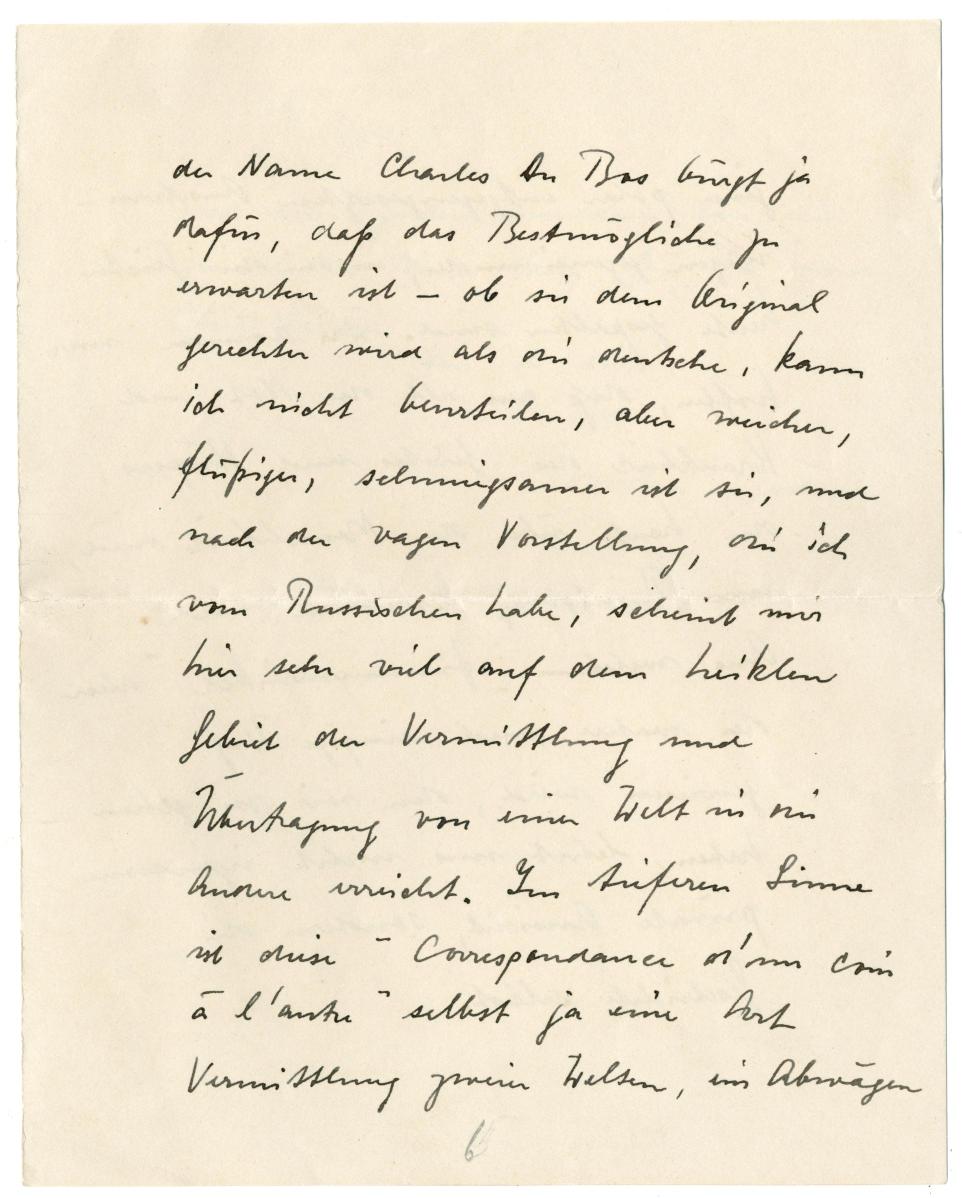 der Name Charles Du Bos bürgt ja
dafür, daß das Bestmögliche zu
erwarten ist – ob sie dem Original
gerechter wird als die deutsche, kann
ich nicht beurteilen, aber weicher,
flüßiger, schmiegsamer ist sie, und
nach der vagen Vorstellung, die ich
vom Russischen habe, scheint mir
hier sehr viel auf dem heiklen
Gebiet der Vermittlung und
Übertragung von einer Welt in die
Andere erreicht. Im tieferen Sinne
ist diese "Correspondance d'un coin
à l'autre" selbst ja eine Art
Vermittlung zweier Welten, ein Abwägen
6